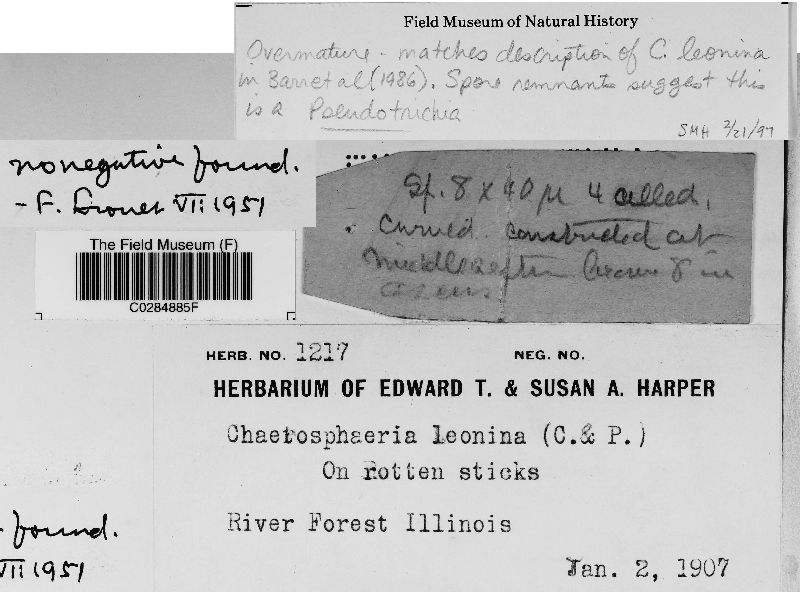 Field Museum of Natural History
Overmature - matches description of C. leonina
in Barr et al (1986). Spore remnants suggest this
is a Pseudotrichia
SMH 2/21/97
no negative found.
- F. VII 1951
Sp. 8 x 40 µ 4 celled,
curved. constricted at
middle septum brown 8 in
The Field Museum (F)
C0284885F
HERB. NO. 1217 NEG. NO.
HERBARIUM OF EDWARD T. & SUSAN A. HARPER
Chaetosphaeria leonina (C.& P.)
On rotten sticks
River Forest Illinois
Jan. 2, 1907
found.
VII 1951